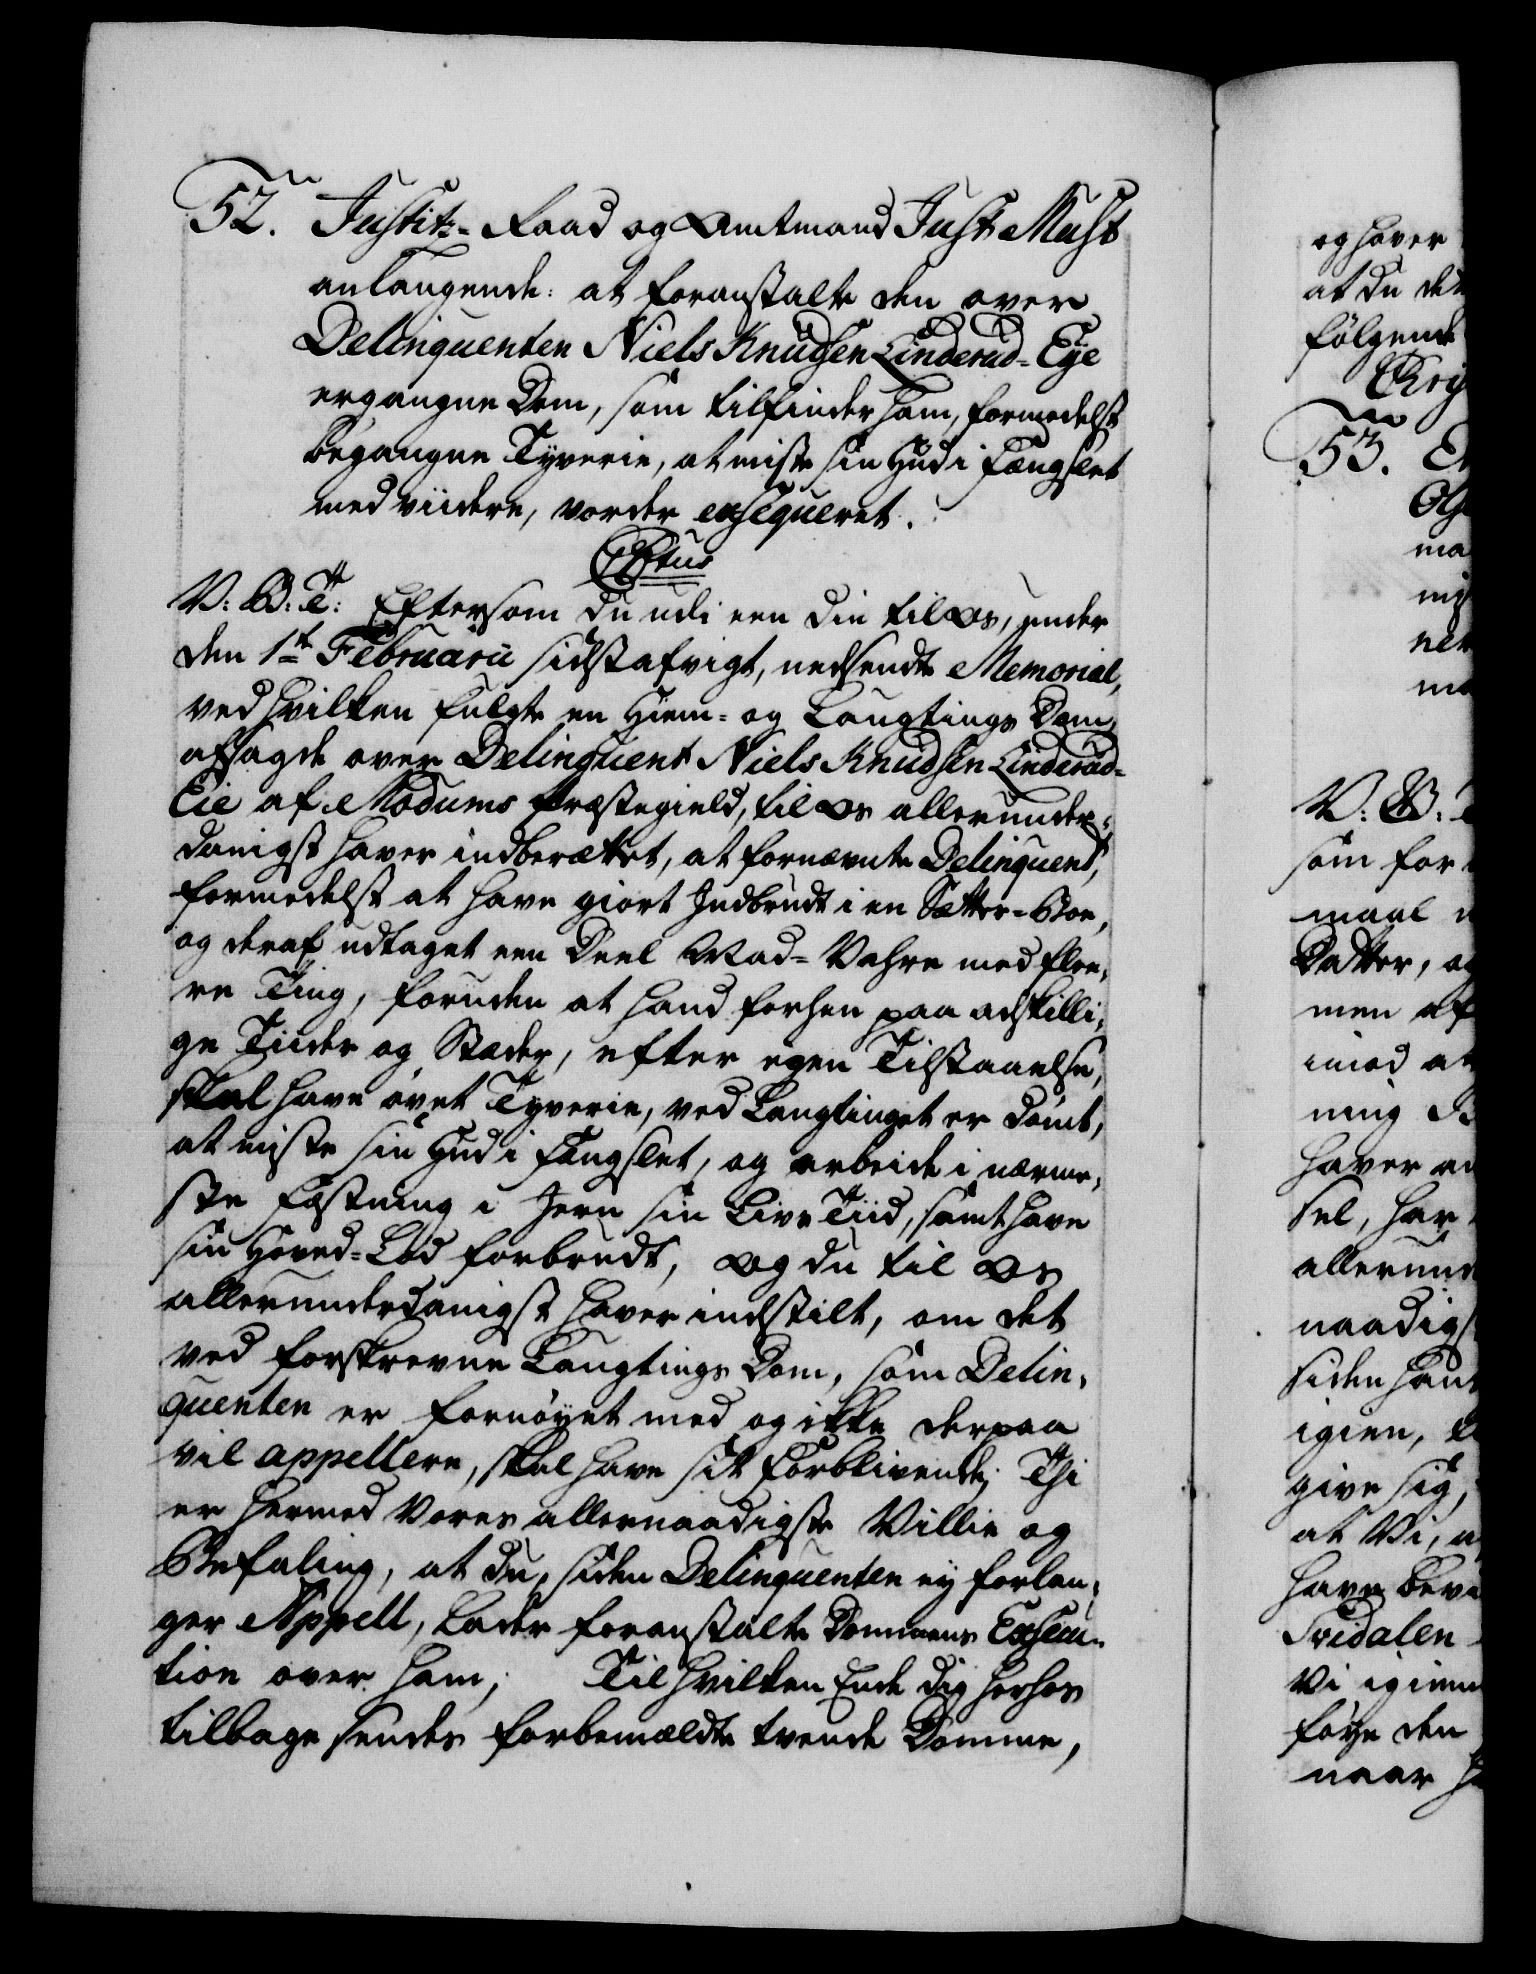 52. Justitz-Raad og Amtmand Just Must
anlangende: at foranstalte den over
Delinquenten Niels Knudsen Linderud-Eye
ergangne Dom, som tilfinder ham, formedelst
begangne Tyverie, at miste sin Hud i Fængslet
med viidere, vorder exseqveret.
V: G: T: Eftersom du udi een din til Os, under
den 1te Februarii sidst afvigt, nedsendte Memorial,
ved hvilken fulgte en Hiem- og Laugtings Dom,
afsagde over Delinquent Niels Knudsen Linderud-
Eie af Modums Præstegield, til Os allerunder-
danigst haver indberættet, at fornævnte Delinquent,
formedelst at have giort Indbrudt i en Sætter-Boe,
og deraf udtaget een Deel Mad-Vahre med flee-
re Ting, foruden at hand forhen paa adskilli-
ge Tiider og Stæder, efter egen Tilstaaelse,
skal have øvet Tyverie, ved Laugtinget er dømt,
at miste sin Hud i Fængslet, og arbeide i nærme-
ste Fæstning i Jern sin Livs Tiid, samt have
sin Hoved-Lod forbrudt, Og du til Os
allerunderdanigst haver indstilt, om det
ved forskrevne Laugtings Dom, som Delin-
quenten er fornøyet med og ikke derpaa
vil appellere, skal have sit Forblivende; Thi
er hermed Vores allernaadigste Villie og
Befaling, at du, siden Delinquenten ey forlan-
ger Appell, lader foranstalte Dommens Exsecu-
tion over ham; Til hvilken Ende dig herhos
tilbage sendes forbemældte tvende Domme,
og haver
at du det
følgende
53.
maa
ner
V: G:
som for
maal
Datter, og
men af
imod at
ning
haver
sel, har
naadigst
siden hans
igien,
give sig,
at Vi,
have
Vi igien
føye den
naar